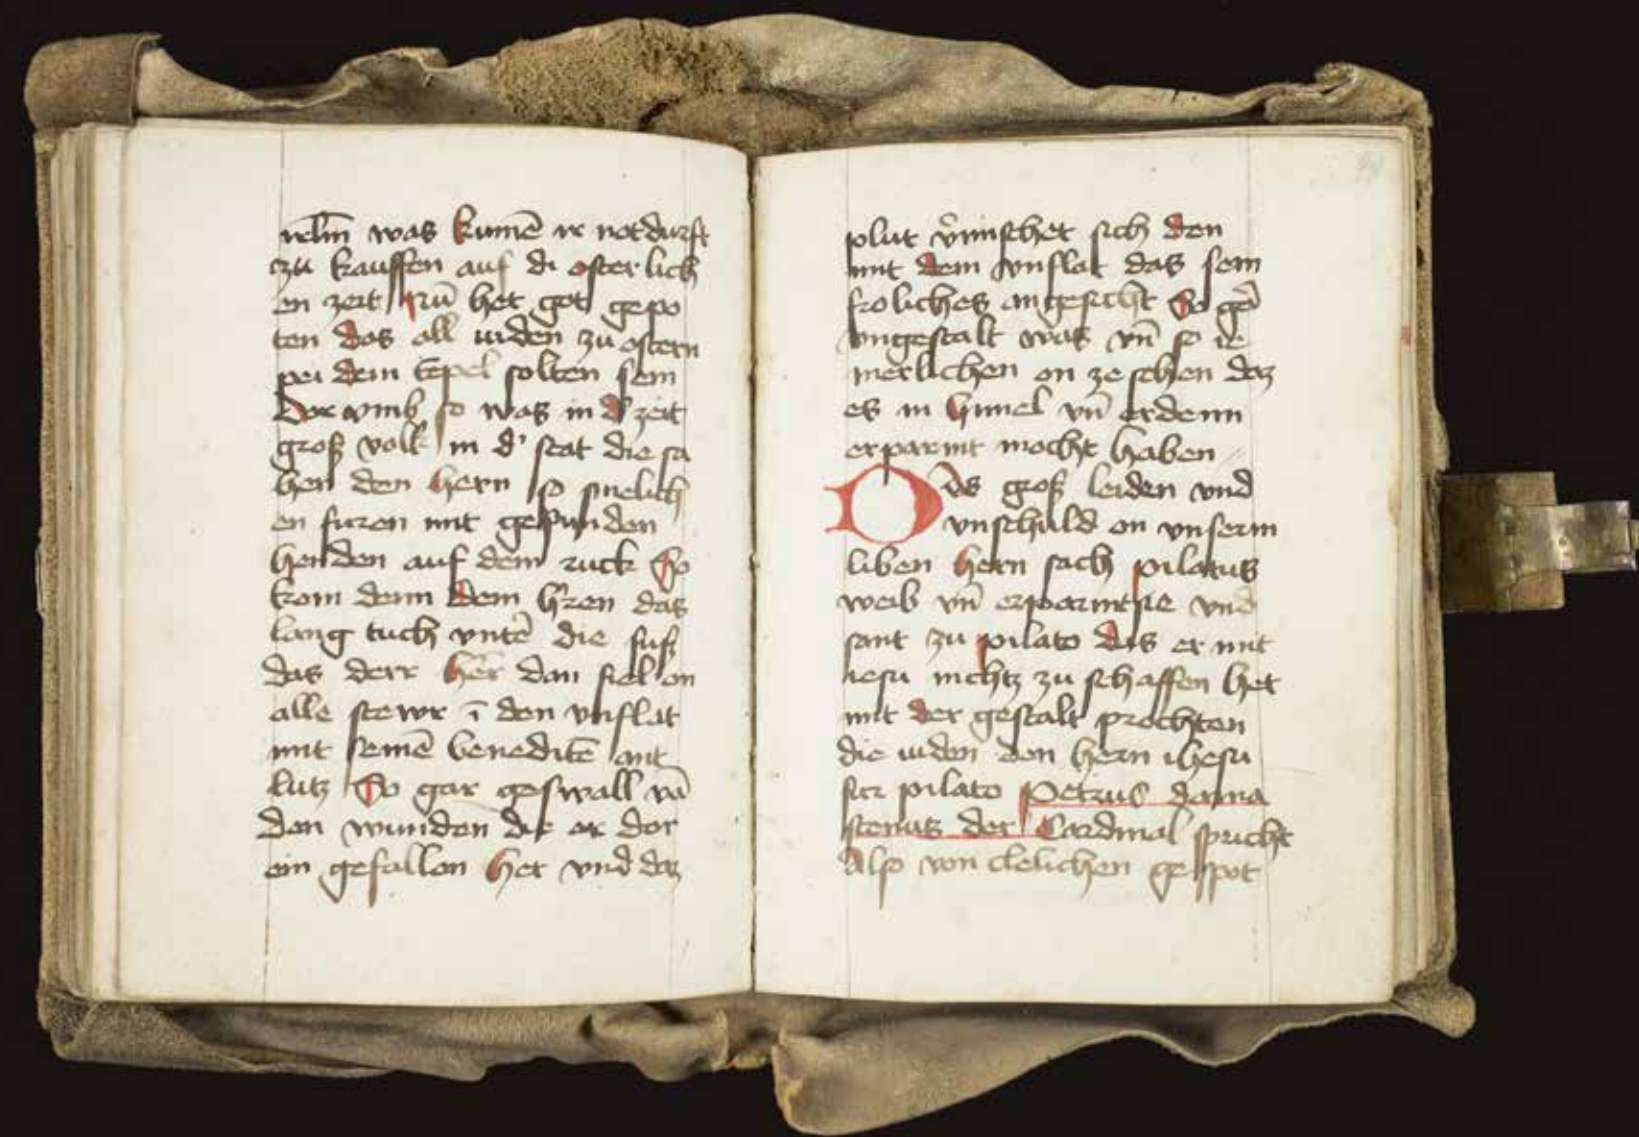 was kumē ir notdurft
zu kauffen auf di osterlich
en zeit Nū het got gepo
ten das all iuden zu ostern
pei dem tēpel solten sein
Dor vmb so was in d' zeit
groß volk in d' stat die sa
hen den hern so smelich
en furen mit gepunden
henden auf dem ruck So
kom denn dem h'ren das
lang tuch vnter̄ die fuß
das derr her dan fiel on
alle stewr ī den vnflat
mit seinē beneditē ant
lutz So gar geswall vā
den wunden die er dor
ein gefallen het vnd daz
plut v'mischet sich den
mit dem vnflat das sein
froliches angesicht So
vngestalt was vn̄ so ie
merlichen on ze sehen daz
es in himel vn̄ erdenn
erparmt mocht haben
Das groß leiden vnd
vnschuld on vnserm
liben hern sach pilatus
weib vn̄ erparmt sie vnd
sant zu pilato das er mit
iesu nichtz zu schaffen het
mit der gestalt prochten
die iuden den hern ihesu
fur pilato Petrus dama
stenus der Cardinal spricht
Also von clelichen gespot
94